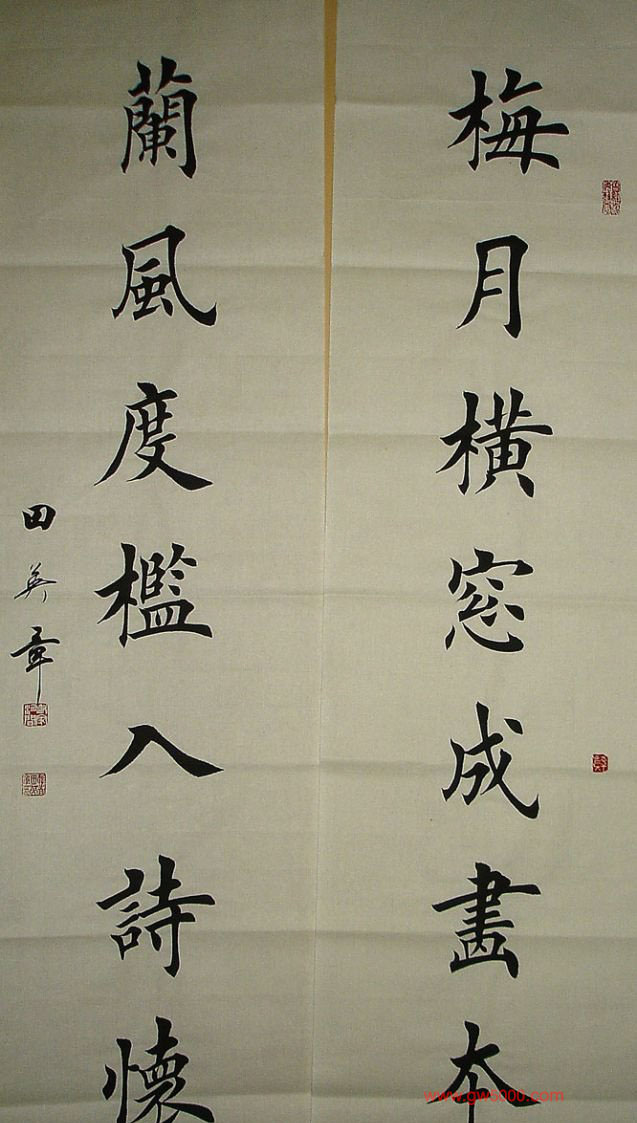 梅月橫窓成畫本
蘭風度檻入詩懷
田英章
www.gw5000.com